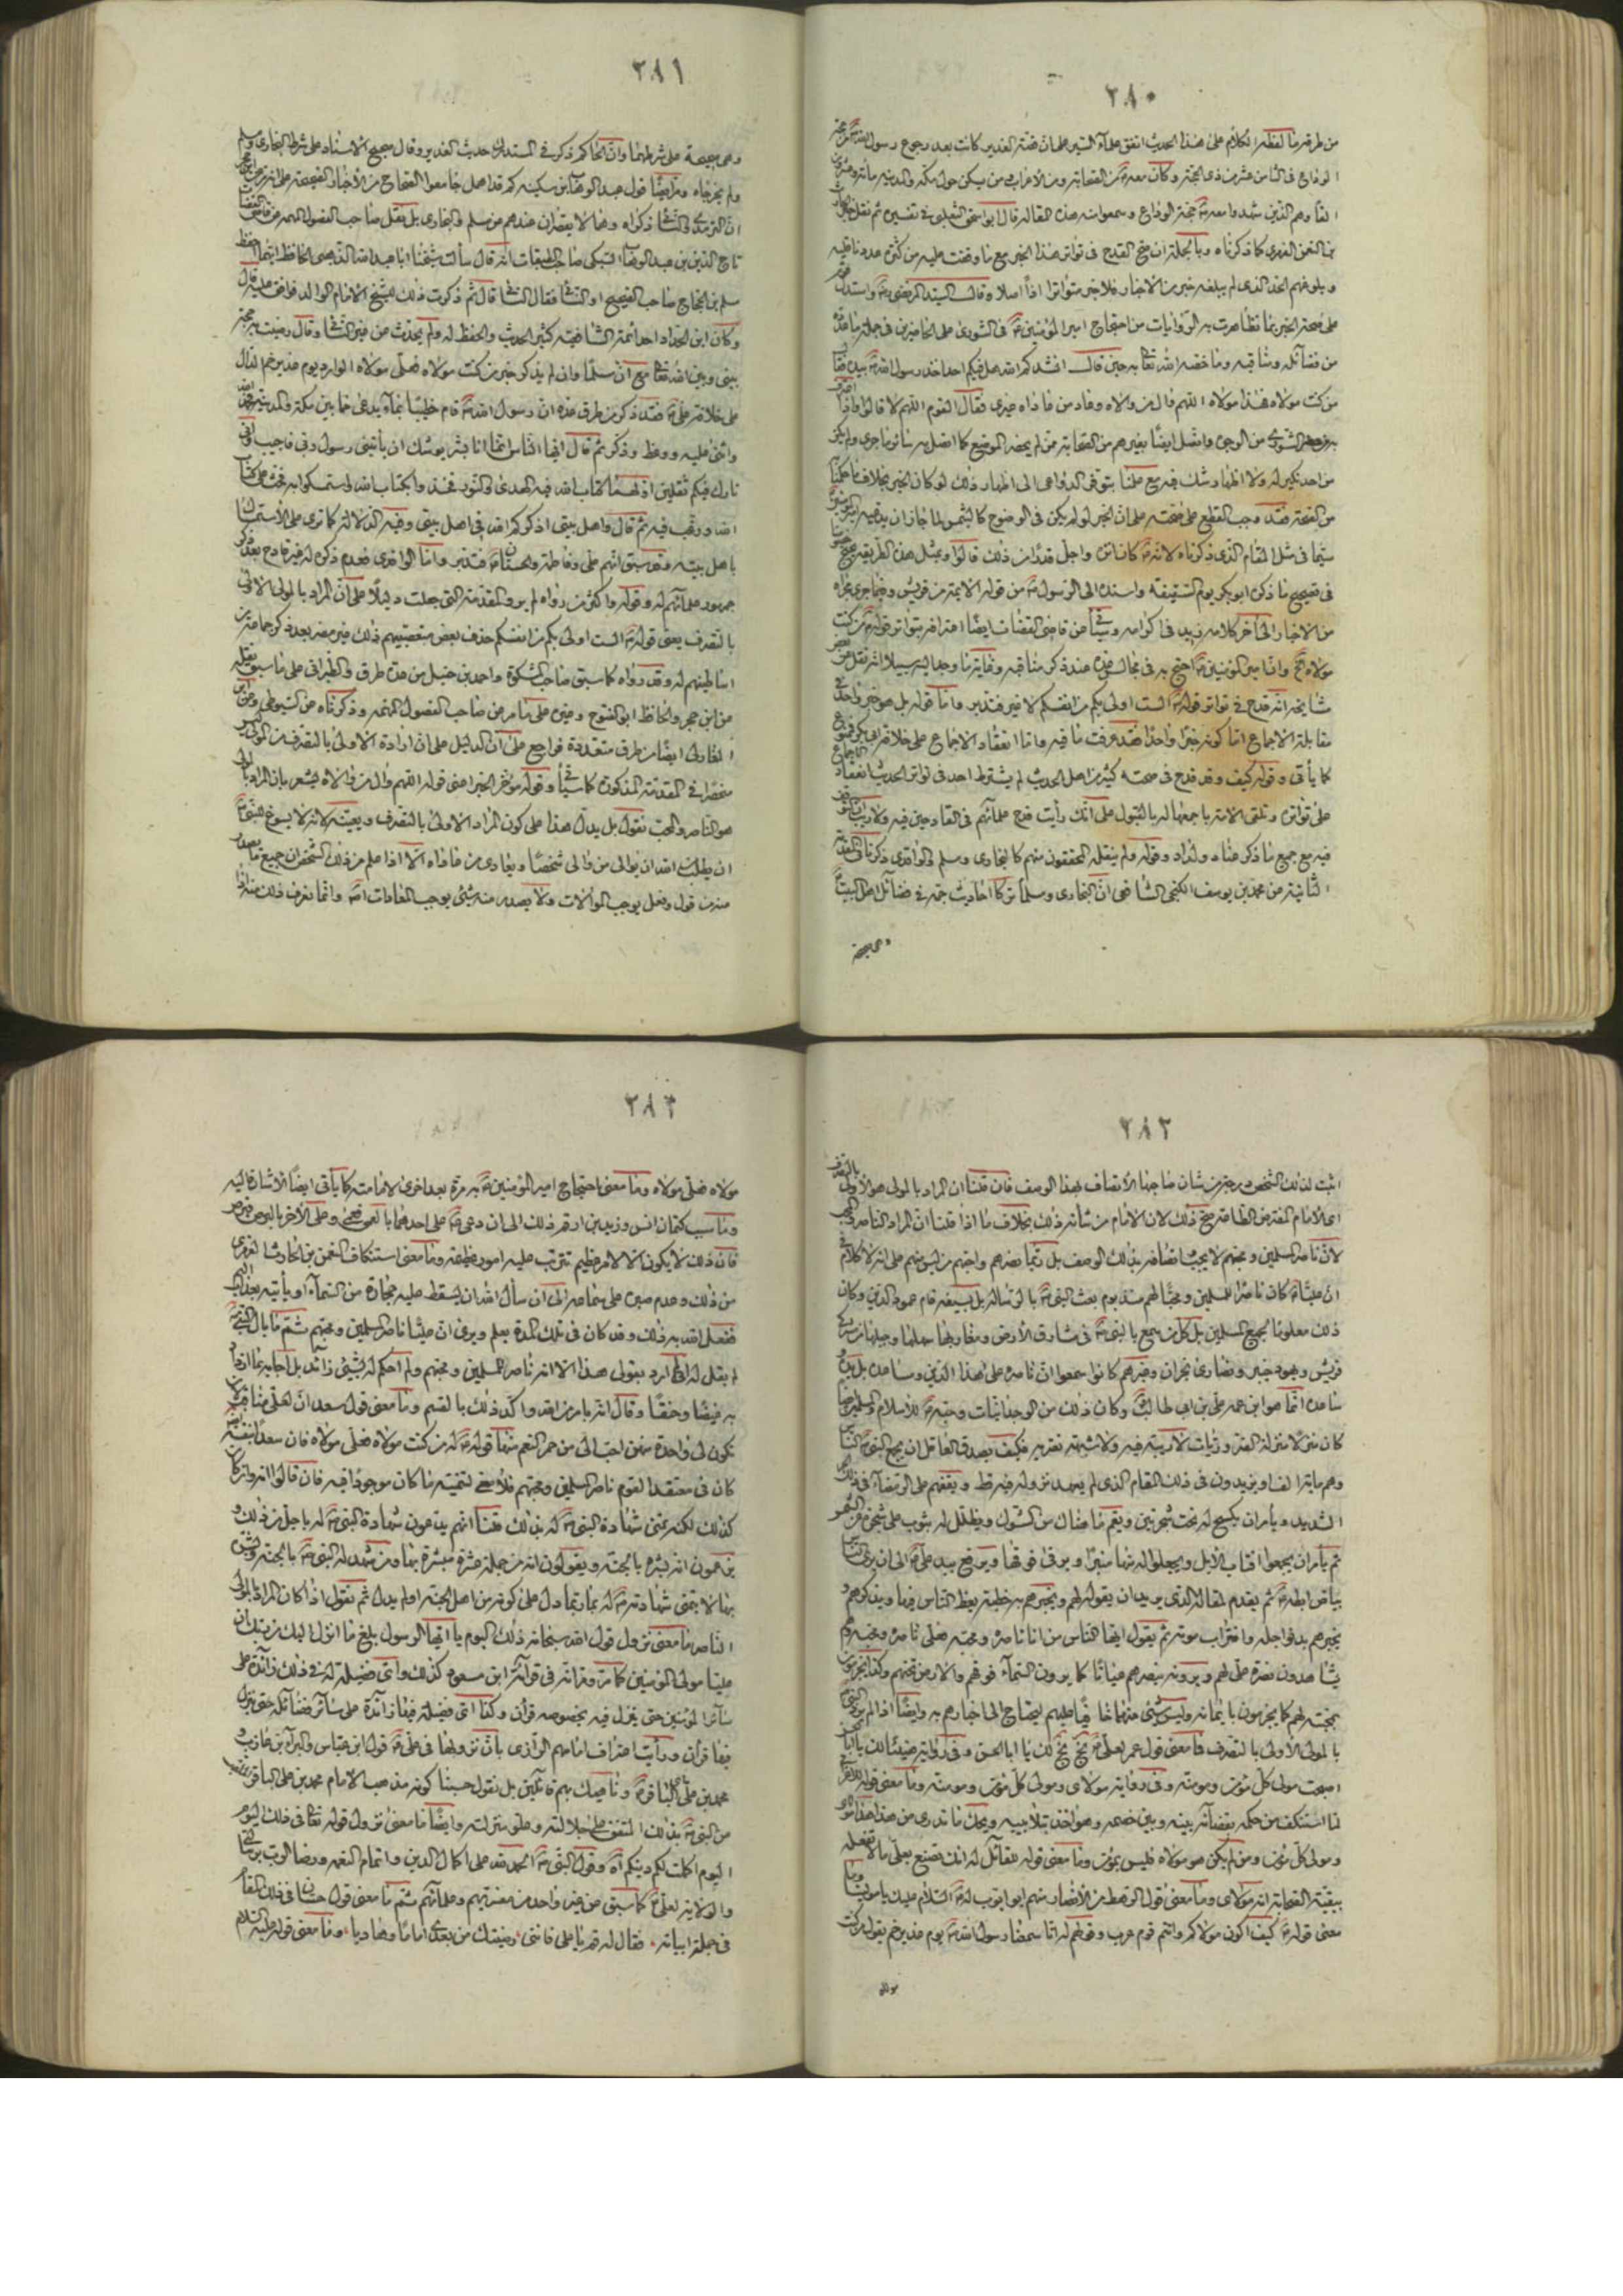 ٢٨٠
من طرقه ما لفظه الكلام على هذا الحديث اتفق علماء السير على ان قصة الغدير كانت بعد رجوع رسول الله من حجة
الوداع في الثامن عشر من ذي الحجة وكان معه من الصحابة ومن الاعراب ممن يسكن حول مكة والمدينة مائة وعشرون
الفا وهم الذين شهدوا معه حجة الوداع وسمعوا منه هذه المقالة قال ابو اسحق الثعلبي في تفسيره ثم نقل
بن النعمن الفهري كما ذكرناه وبالجملة ان صح القدح في تواتر هذا الخبر مع ما وقفت عليه من كثرة عدد ناقليه
وبلوغهم الحد الذي لم يبلغه خبر من الاخبار فلا خبر متواترا اذا اصلا وقال السيد المرتضى واستدل
على صحة الخبر بما تظاهرت به الروايات من احتجاج امير المؤمنين في الشورى على الحاضرين في جملة ما عدده
من فضائله ومناقبه وما خصه الله تعا به حين قال انشدكم الله هل فيكم احد اخذ رسول الله بيده فقال
من كنت مولاه فهذا مولاه اللهم وال من والاه وعاد من عاداه غيري فقال القوم اللهم لا قالوا واذا
من الوجوه واتصل ايضا بغيرهم من الصحابة ممن لم يحضر الموضع كما اتصل به سائر ما جرى ولم يكن
من احد نكير له ولا اظهار شك فيه مع علمنا بتوفر الدواعي الى اظهار ذلك لو كان الخبر بخلاف ما حكمنا
من الصحة فقد وجب القطع على صحته على ان الخبر لو لم يكن في الوضوح كالشمس لما جاز ان يدعيه
سيما في مثل المقام الذي ذكرناه لانه كان انزه واجل قدرا من ذلك قالوا وبمثل هذه الطريقة
في تصحيح ما ذكره ابو بكر يوم السقيفة واسنده الى الرسول من قوله الائمة من قريش وفيما جرى مجراه
من الاخبار الى آخر كلامه
مولاه وان امير المؤمنين احتج به في مجالس عدة عند ذكر مناقبه
مشايخه انه قدح في تواتر قوله الست اولى بكم من انفسكم لا غير فتدبر واما قوله بل هو خبر واحد في
مقابلة الاجماع اما كونه خبرا واحدا فقد عرفت ما فيه واما انعقاد الاجماع على خلافة ابي بكر فممنوع
كما يأتي وقوله كيف وقد قدح في صحته كثير من اهل الحديث لم يشترط احد في تواتر الحديث انعقاد
على تواتره وتلقي الامة باجمعها له بالقبول على انك رأيت قدح علمائهم في القادحين فيه
فيه مع جميع ما ذكر عناد ولداد وقوله ولم ينقله المحققون منهم كالبخاري ومسلم والواقدي ذكرنا في المقدمة
الثانية من محمد بن يوسف الكنجي الشافعي ان البخاري ومسلما تركا احاديث جمة في فضائل اهل البيت
وهي صحيحة
٢٨١
وهي صحيحة على شرطهما وان الحاكم ذكر في المستدرك حديث الغدير وقال صحيح الاسناد على شرط البخاري ومسلم
ولم يخرجاه
ذكراه وهما لا يقصران عندهم من مسلم والبخاري بل نقل صاحب الفصول المهمة
تاج الدين بن عبد الوهاب السبكي صاحب الطبقات انه قال سألت شيخنا ابا عبد الله الذهبي الحافظ ايهما احفظ
مسلم بن الحجاج صاحب الصحيح او النسائي فقال النسائي قال ثم ذكرت ذلك للشيخ الامام الوالد فوافق عليه
وكان ابن الحداد احد ائمة الشافعية كثير الحديث والحفظ له ولم يحدث عن غير النسائي وقال رضيت به حجة
بيني وبين الله تعا مع ان مسلما وان لم يذكر خبر من كنت مولاه فعلي مولاه الوارد يوم غدير خم الدال
على خلافة علي فقد ذكر من طرق عدة ان رسول الله قام خطيبا بماء يدعى خما بين مكة والمدينة فحمد
واثنى عليه ووعظ وذكر ثم قال ايها الناس انما انا بشر يوشك ان يأتيني رسول ربي فاجيب واني
تارك فيكم ثقلين اولهما كتاب الله فيه الهدى والنور فخذوا بكتاب الله واستمسكوا به فحث على كتاب
الله ورغب فيه ثم قال واهل بيتي اذكركم الله في اهل بيتي وفيه الدلالة كما ترى على الاستمساك
باهل بيته وقد سبق انهم علي وفاطمة والحسنان فتدبر واما الواقدي فعدم ذكره له غير قادح بعد ذكر
جمهور علمائهم له وقوله واكثر من رواه لم يرو المقدمة التي جعلت دليلا على ان المراد بالمولى الاولى
بالتصرف يعني قوله الست اولى بكم من انفسكم حذف بعض متعصبيهم ذلك غير مضر بعد ذكر جماعة من
اساطينهم له وقد رواه كما سبق صاحب المشكوة واحمد بن حنبل من عدة طرق والطبراني على ما سبق نقله
من ابن حجر والحافظ ابو الفتوح وغيره على ما مر من صاحب الفصول المهمة وذكرناه من السيوطي
المغازلي ايضا من طرق متعددة فراجع على ان الدليل على ان ارادة الاولى بالتصرف من المولى
منحصرا في المقدمة المذكورة كما سيأتي وقوله مؤخر الخبر اعني قوله اللهم وال من والاه يشعر بان المراد بالمولى
هو الناصر والمحب نقول بل يدل هذا على كون المراد الاولى بالتصرف ويعينه لانه لا يسوغ
ان يطلب من الله ان يوالي من والى شخصا ويعادي من عاداه الا اذا علم من ذلك الشخص ان جميع ما يصدر
منه من قول وفعل يوجب الموالات ولا يصدر منه شيئ يوجب المعادات وانما نعرف ذلك منه اذا
٢٨٢
اثبت لذلك الشخص
اي الامام المفترض الطاعة صح ذلك لان الامام من شأنه ذلك بخلاف ما اذا قلنا ان المراد الناصر والمحب
لان ناصر المسلمين ومحبهم لا يجب اتصافه بذلك الوصف بل ربما نصرهم واحبهم من ليس منهم على انه لا كلام في
ان عليا كان ناصرا للمسلمين ومحبا لهم منذ يوم بعث النبي بالرسالة بل بسيفه قام عمود الدين وكان
ذلك معلوما لجميع المسلمين بل كل من سمع بالنبي في مشارق الارض ومغاربها سهلها وجبلها من مشركي
قريش ويهود خيبر ونصارى نجران وغيرهم كانوا سمعوا ان ناصره على هذا الدين وساعده بل
ساعده انما هو ابن عمه علي بن ابي طالب وكان ذلك من الوجدانيات وحبه للاسلام والمسلمين
كان منزلا منزلة الضروريات لا ريبة فيه ولا شبهة تعتريه فكيف يصدق العاقل ان يجمع النبي الناس
وهم مائة الف او يزيدون في ذلك المقام الذي لم يعهد نزوله فيه قط ويقفهم على الرمضاء في ذلك
الشديد ويأمر ان يكسح له تحت شجرتين ويقم ما هناك من الشوك ويظلل له بثوب على شجرة من
ثم يأمر ان يجمعوا اقتاب الابل ويجعلوا له منها منبرا ويرقى فوقها ويرفع بيد علي الى ان يرى الناس
بياض ابطه ثم يقدم لمقاله الذي يريد ان يقوله لهم ويخبرهم به خطبة يعظ الناس فيها ويذكرهم و
يخبرهم بدنو اجله واقتراب موته ثم يقول ايها الناس من انا ناصره ومحبه فعلي ناصره ومحبه وهم
يشاهدون نصرة علي لهم ويرونه ينصرهم عيانا كما يرون السماء فوقهم والارض تحتهم
بمحبته لهم كما يجزمون بايمانه وليس شيئ منهما خافيا عليهم ليحتاج الى اخبارهم به وايضا اذا لم يرد النبي
بالمولى الاولى بالتصرف فما معنى قول عمر لعلي بخ بخ لك يا ابا الحسن وفي رواية هنيئا لك يا
اصبحت مولى كل مؤمن ومؤمنة وفي رواية مولاي ومولى كل مؤمن ومؤمنة وما معنى قوله
لما استنكف من حكمه بقضائه بينه وبين خصمه وهو اخذ بتلابيبه ويحك ما تدري من هذا هذا مولاي
ومولى كل مؤمن ومن لم يكن هو مولاه فليس بمؤمن وما معنى قوله للقائل له انك تصنع بعلي ما لا تفعله
ببقية الصحابة انه مولاي وما معنى قول الرهط من الانصار منهم ابو ايوب له السلام عليك يا مولانا وما
معنى قوله كيف اكون مولاكم وانتم قوم عرب وقولهم له انا سمعنا رسول الله يوم غدير خم يقول من كنت
مولاه
٢٨٣
مولاه فعلي مولاه وما معنى احتجاج امير المؤمنين به مرة بعد اخرى لامامته كما يأتي ايضا الاشارة اليه
وما سبب كتمان انس وزيد بن ارقم ذلك الى ان دعى على احدهما بالعمى فعمي وعلى الآخر بالبرص
فان ذلك لا يكون الا لامر عظيم تترتب عليه امور عظيمة وما معنى استنكاف النعمن بن الحارث الفهري
من ذلك وعدم صبره على سماعه الى ان سأل الله ان يسقط عليه حجارة من السماء او يأتيه بعذاب
ففعل الله به ذلك وقد كان في تلك المدة يعلم ويرى ان عليا ناصر المسلمين ومحبهم ثم ما بال النبي
لم يقل له اني لم ارد بقولي هذا الا انه ناصر المسلمين ومحبهم ولم احكم له بشيئ زائد بل اجابه بما ازداد
به غيضا وحنقا وقال انه بامر من الله واكد ذلك بالقسم وما معنى قول سعد ان لعلي مناقب لان
تكون لي واحدة منهن احب الي من حمر النعم منها قوله له من كنت مولاه فعلي مولاه فان سعدا
كان في معتقد القوم ناصر المسلمين ومحبهم فلا معنى لتمنيه ما كان موجودا فيه فان قالوا انه وان كان
كذلك لكنه تمنى شهادة النبي له بذلك قلنا انهم يدعون شهادة النبي له باجل من ذلك
يزعمون انه بشره بالجنة ويقولون انه من جملة عشرة مبشرة بها ومن شهد له النبي بالجنة
بها لا يتمنى شهادته له بما ربما دل على كونه من اهل الجنة او لم يدل ثم نقول اذا كان المراد بالمولى
الناصر ما معنى نزول قول الله سبحانه ذلك اليوم يا ايها الرسول بلغ ما انزل اليك من ربك ان
عليا مولى المؤمنين كما مر وقرائته في قرآءة ابن مسعود كذلك واي فضيلة له في ذلك زائدة على
سائر المؤمنين حتى ينزل فيه بخصوصه قرآن وكذا اي فضيلة فيها زائدة على سائر فضائله حتى ينزل
فيها قرآن ورأيت اعتراف امامهم الرازي بان نزولها في علي قول ابن عباس والبراء بن عازب و
محمد بن علي الباقر وناهيك بهم قائلين بل نقول حسبنا كونه مذهب الامام محمد بن علي الباقر
من النبي بذلك المتفق على جلالته وعلو منزلته وايضا ما معنى نزول قوله تعا في ذلك اليوم
اليوم اكملت لكم دينكم وقول النبي الحمد لله على اكمال الدين واتمام النعمة ورضا الرب برسالتي
والولاية لعلي كما سبق من غير واحد من مفسريهم وعلمائهم ثم ما معنى قول حسان في ذلك المقام
في جملة ابياته فقال له قم يا علي فانني رضيتك من بعدي اماما وهاديا وما معنى قوله عليه السلام